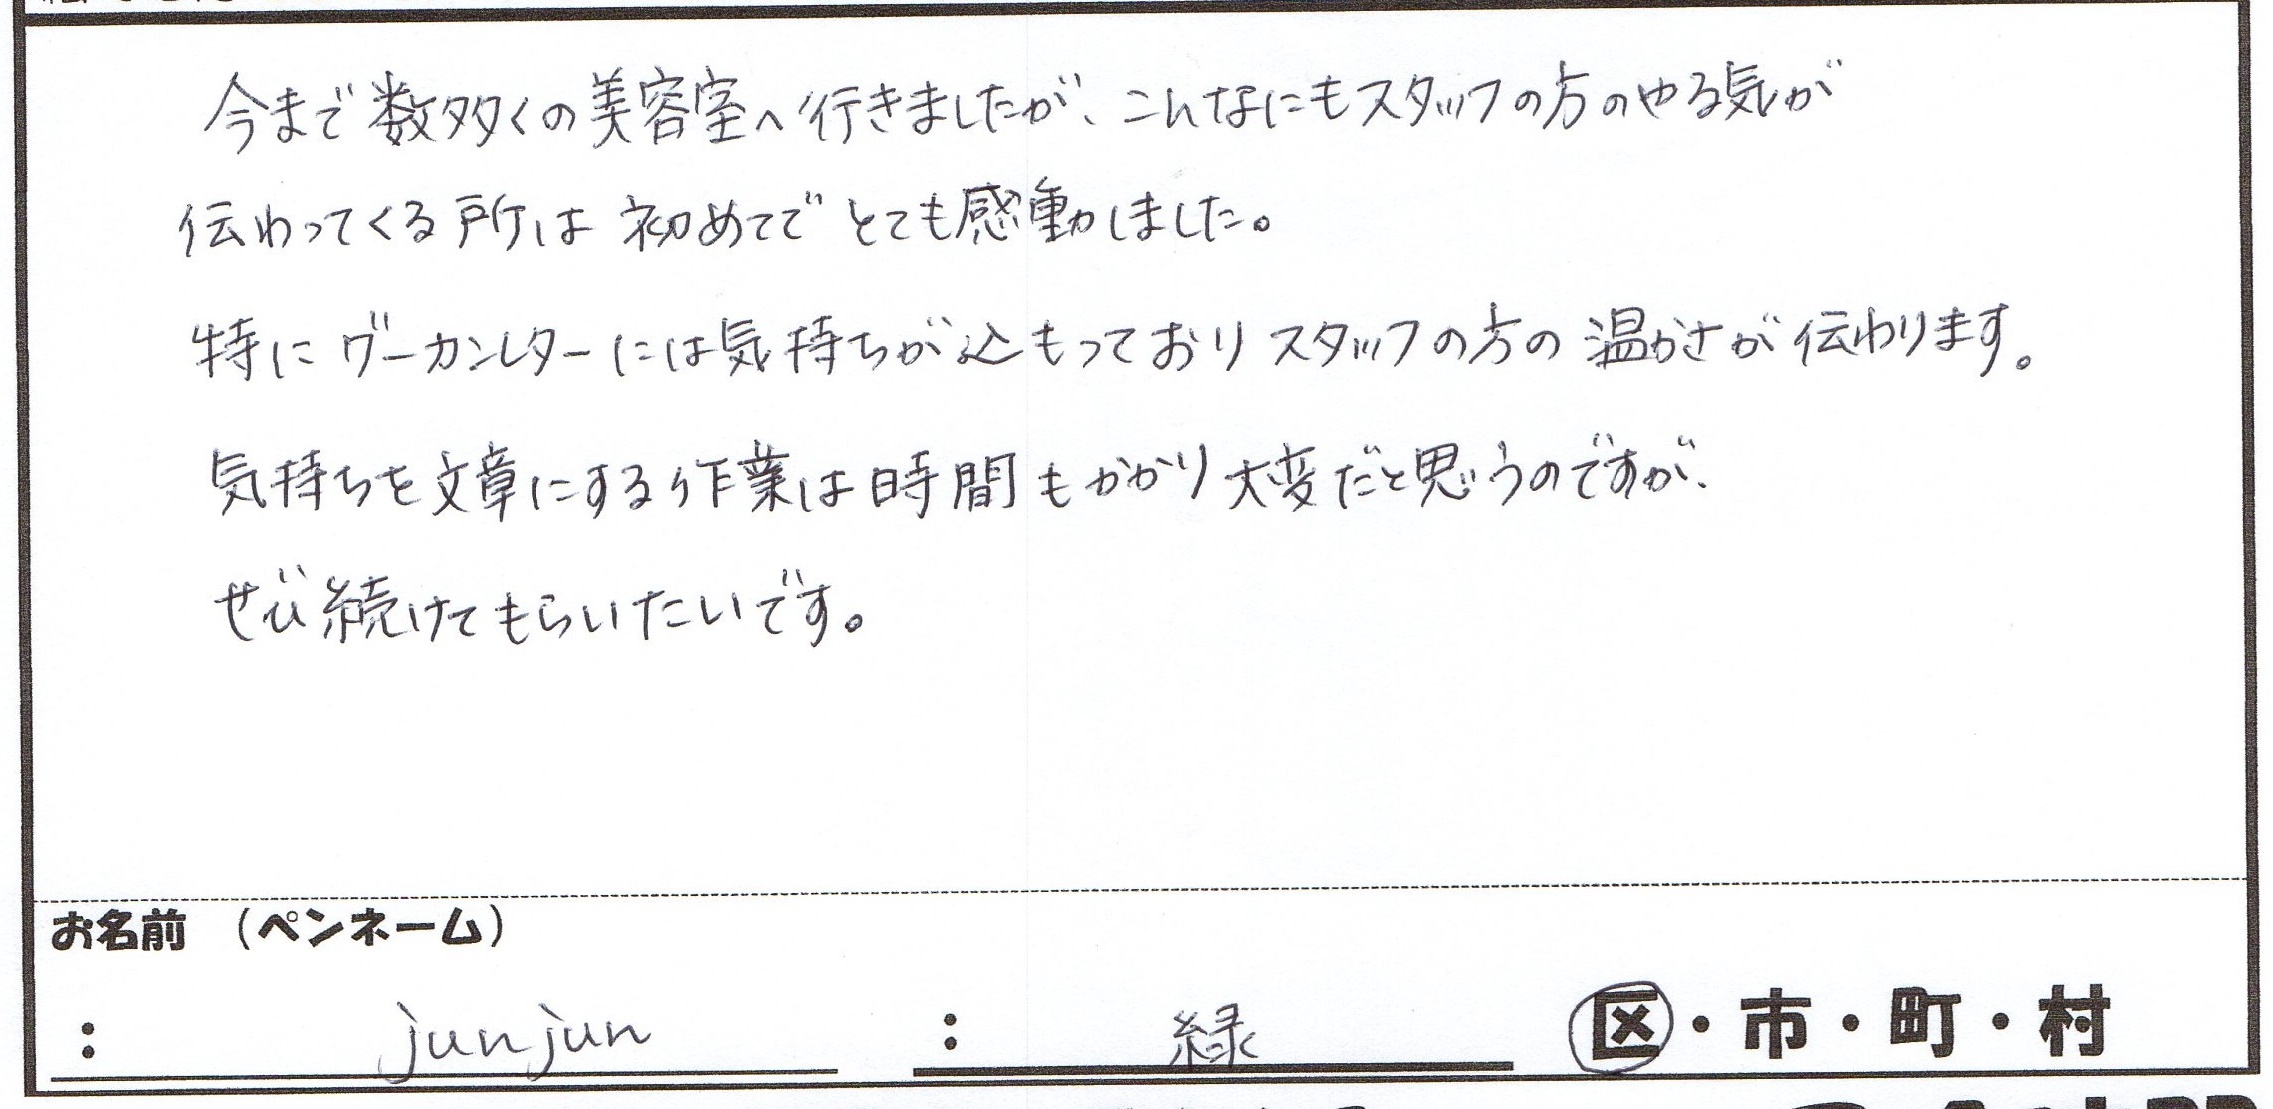 今まで数多くの美容室へ行きましたが、こんなにもスタッフの方のやる気が
伝わってくる所は初めてでとても感動しました。
特にヴーカンレターには気持ちが込もっておりスタッフの方の温かさが伝わります。
気持ちを文章にする作業は時間もかかり大変だと思うのですが、
ぜひ続けてもらいたいです。
お名前 （ペンネーム）
： junjun ： 緑 区・市・町・村